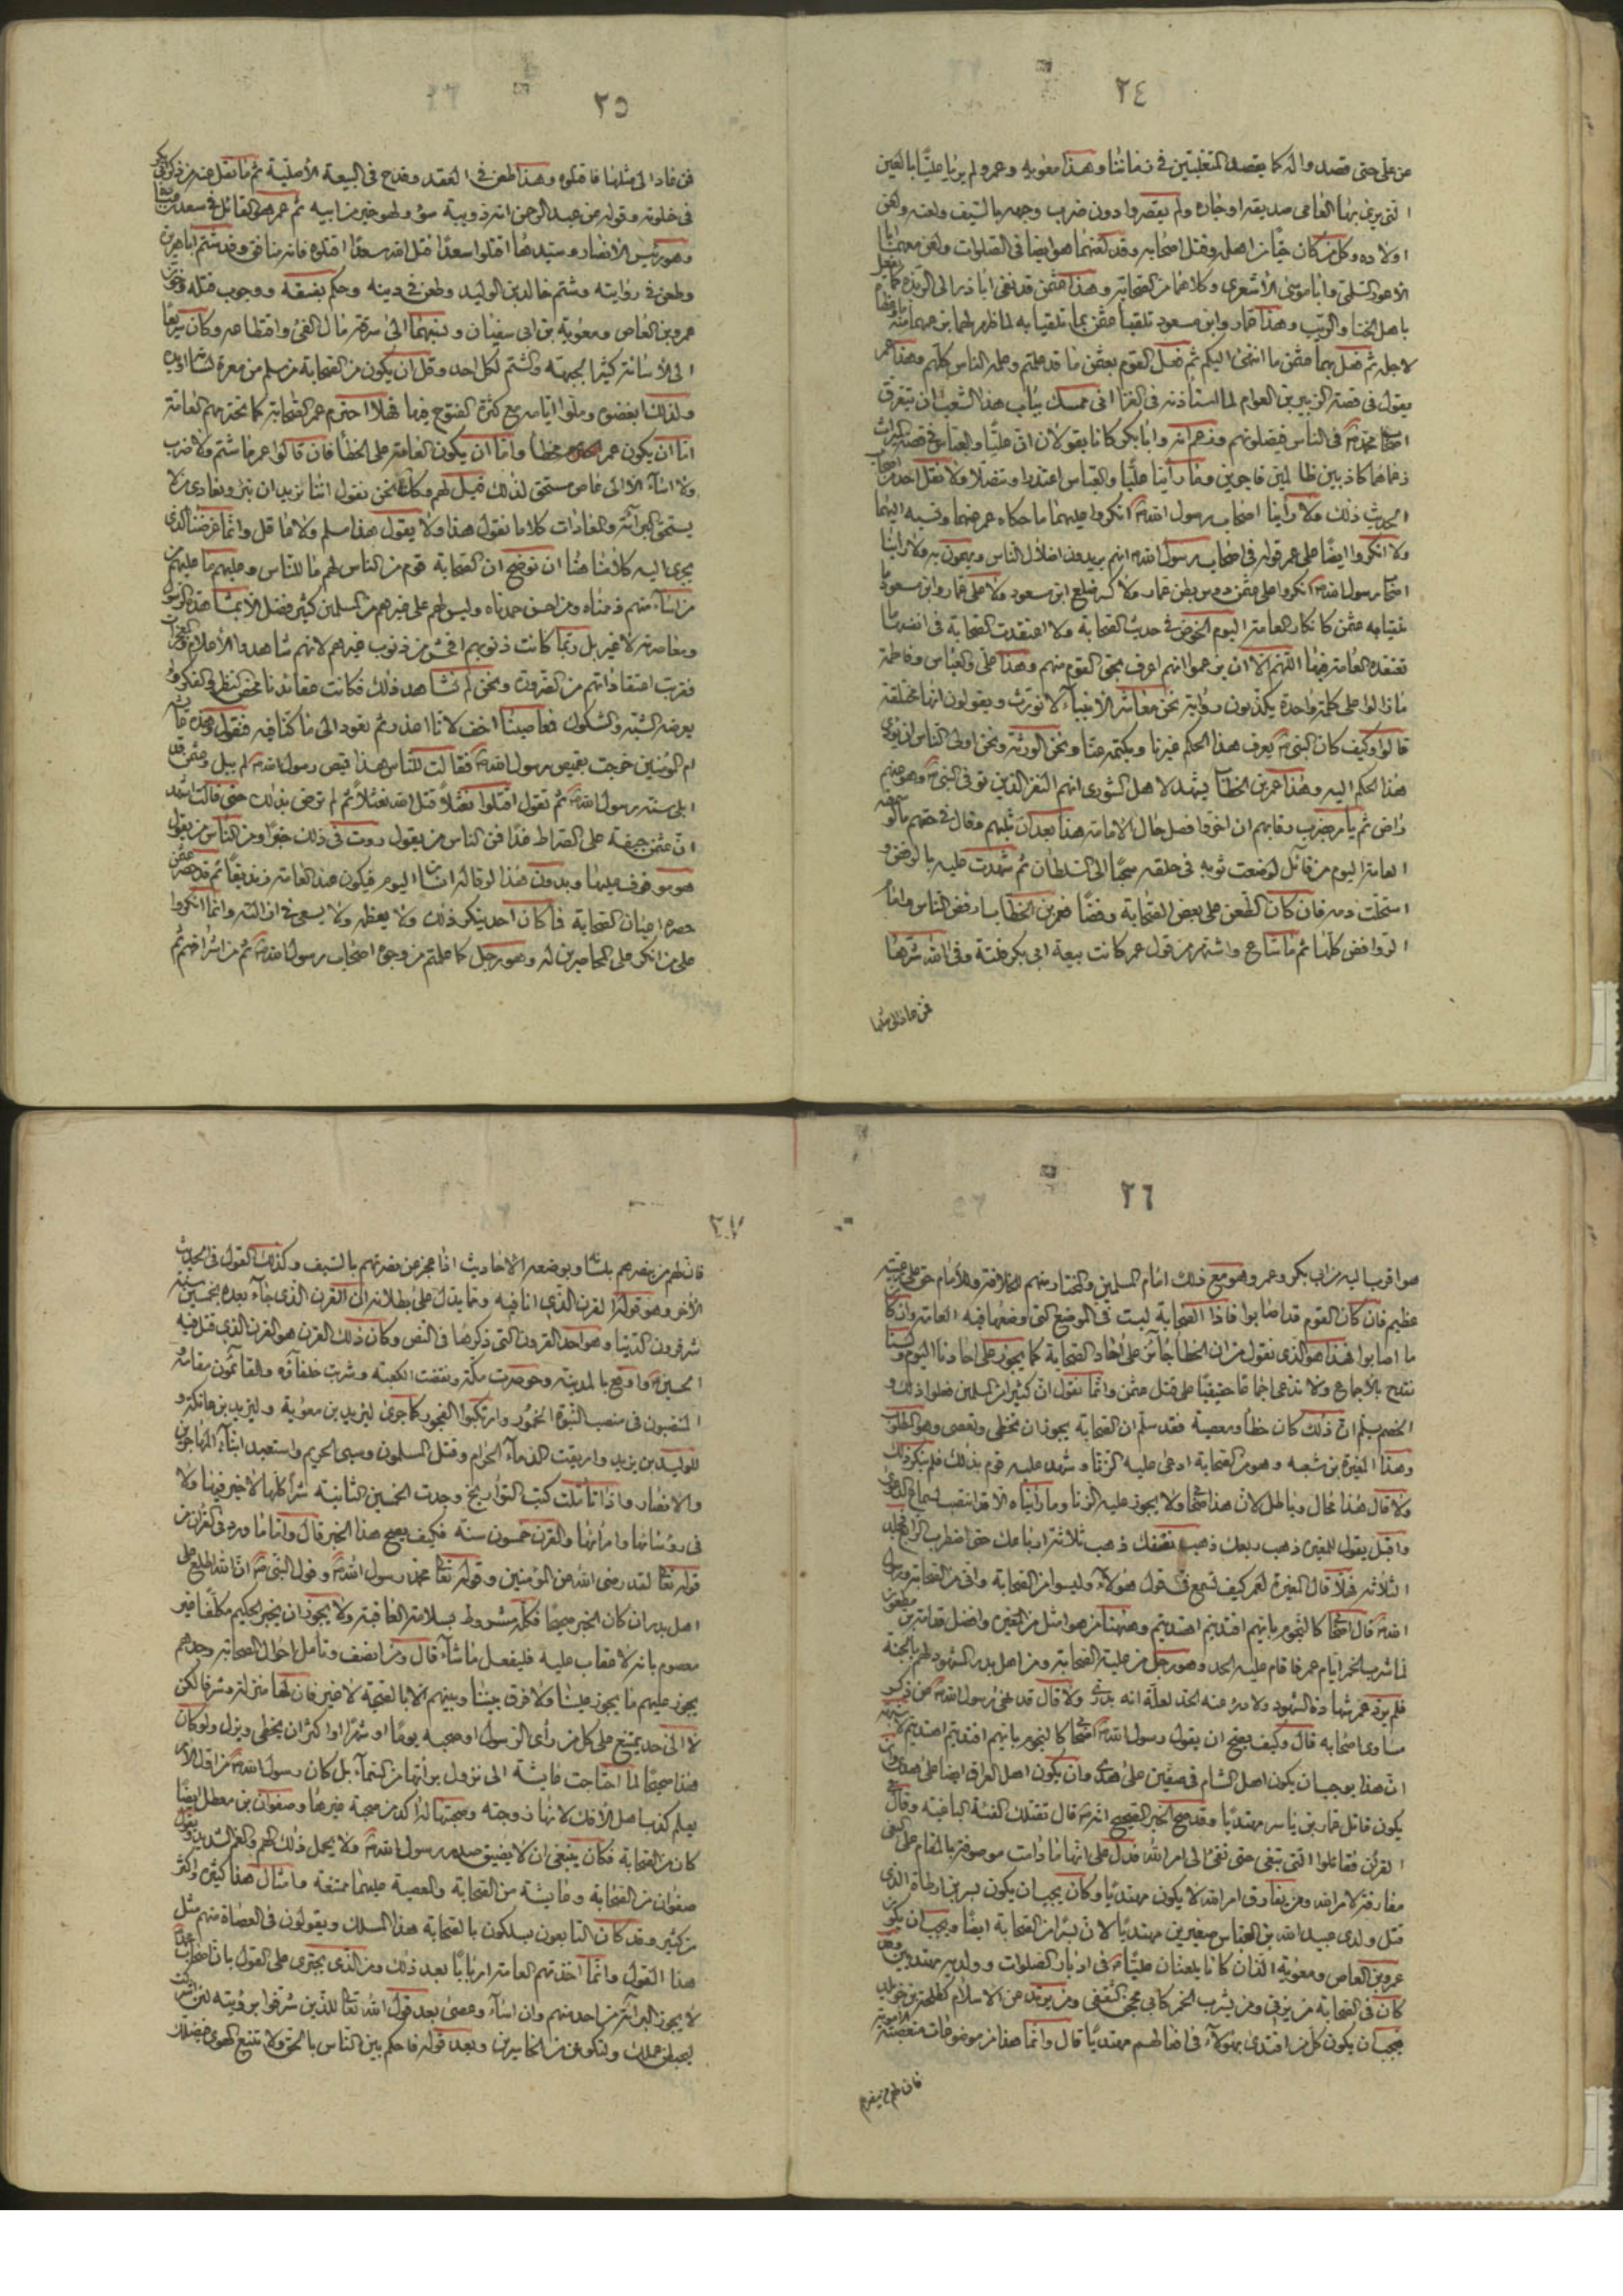 ٢٤
من على حتى قصد واله كما يقصد المتغلبين فى زماننا وهذا معوية وعمرو لم يرياه علينا بالعين
التى يرى بها العامى صديقه او جاره ولم يقصروا دون ضرب وجهه بالسيف ولعنه ولعن
اولاده وكل من كان حيا من اهله وقتل اصحابه وقد لعنهما هو ايضا فى الصلوات ولعن معهما ابا
الاعور السلمى وابا موسى الاشعرى وكلاهما من الصحابة وهذا عثمن قد نفى اباذر الى الربذة كما يفعل
باهل الخنا والريب وهذا عمار وابن مسعود تلقيا عثمن بما تلقيا به لما ظهر لهما بزعمهما منه
لاجله ثم فعل بهما عثمن ما انتهى اليكم ثم فعل القوم بعثمن ما قد علمتم وعلم الناس كلهم وهذا عمر
يقول فى قصة الزبير بن العوام لما استاذنه فى الغزا انى ممسك بباب هذا الشعب ان يتفرق
اصحاب محمد فى الناس فيضلونهم وزعم انه وابا بكر كانا يقولان ان عليا والعباس فى قصة الميراث
زعماهما كاذبين ظالمين فاجرين وما راينا عليا والعباس اعتذرا وتنصلا ولا نقل احد من اصحاب
الحديث ذلك ولا راينا اصحاب رسول الله انكروا عليهما ما حكاه عمر عنهما ونسبه اليهما
ولا انكروا ايضا على عمر قوله فى اصحاب رسول الله انهم يريدون اضلال الناس ويهمون به ولا راينا
اصحاب رسول الله انكروا على عثمن دوس بطن عمار ولا كسر ضلع ابن مسعود ولا على عمار وابن مسعود ما
تلقيا به عثمن كانكار العامة اليوم الخوض فى حديث الصحابة ولا اعتقدت الصحابة فى انفسها ما
تعتقده العامة فيها اللهم الا ان يزعموا انهم اعرف بحق القوم منهم وهذا على والعباس وفاطمة
ما زالوا على كلمة واحدة يكذبون رواية نحن معاشر الانبياء لا نورث ويقولون انها مختلقة
قالوا وكيف كان النبى يعرف هذا الحكم غيرنا ويكتمه عنا ونحن الورثة ونحن اولى الناس ان يودى
هذا الحكم اليه وهذا عمر بن الخطاب يشهد لاهل الشورى انهم النفر الذين توفى النبى وهو عنهم
راض ثم يامر بضرب رقابهم ان اخروا فصل حال الامامة هذا بعد ان ثلبهم وقال فى حقهم ما لو سمعته
العامة اليوم من قائل لوضعت ثوبه فى حلقه سحبا الى السلطان ثم شهدت عليه بالرفض و
استحلت دمه فان كان الطعن على بعض الصحابة رفضا فعمر بن الخطاب ارفض الناس وامام
الروافض كلها ثم ما شاع واشتهر من قول عمر كانت بيعة ابى بكر فلتة وقى الله شرها
فمن عاد الى مثلها
٢٥
فمن عاد الى مثلها فاقتلوه وهذا طعن فى العقد وقدح فى البيعة الاصلية ثم ما نقل عنه من ذكر ابى بكر
فى خلوته وقوله عن عبد الرحمن ابنه دويبة سوء ولهو خير من ابيه ثم عمر هو القائل فى سعد بن عبادة
وهو رئيس الانصار وسيدها اقتلوا سعدا قتل الله سعدا اقتلوه فانه منافق وقد شتم ابا هريرة
وطعن فى روايته وشتم خالد بن الوليد وطعن فى دينه وحكم بفسقه ووجوب قتله وخون
عمرو بن العاص ومعوية بن ابى سفيان ونسبهما الى سرقة مال الفئ واقتطاعه وكان سريعا
الى الاساءة كثير الجبه والشتم لكل احد وقل ان يكون من الصحابة من سلم من معرة لسانه او يده
ولذلك ابغضوه وملوا ايامه مع كثرة الفتوح فيها فهلا احترم عمر الصحابة كما تحترمهم العامة
اما ان يكون عمر مخطأ واما ان يكون العامة على الخطأ فان قالوا عمر ما شتم ولا ضرب
ولا اساء الا الى عاص مستحق لذلك قيل لهم فكانا نحن نقول اننا نريد ان نبرئ ونعادى من لا
يستحق البراءة والمعادات كلا ما نقول هذا ولا يقول هذا مسلم ولا عاقل وانما غرضنا الذى
يجرى اليه كلامنا هذا ان نوضح ان الصحابة قوم من الناس لهم ما للناس وعليهم ما عليهم
من اساء منهم ذممناه ومن احسن حمدناه وليس لهم على غيرهم من المسلمين كثير فضل الا بمشاهدة الرسول
ومعاصرته لا غير بل ربما كانت ذنوبهم افحش من ذنوب غيرهم لانهم شاهدوا الاعلام والمعجزات
فقربت اعتقاداتهم من الضرورة ونحن لم نشاهد ذلك فكانت عقائدنا محض النظر والفكر و
بعرضة الشبه والشكوك فمعاصينا اخف لانا اعذر ثم نعود الى ما كنا فيه فنقول وهذه عايشة
ام المؤمنين خرجت بقميص رسول الله فقالت للناس هذا قميص رسول الله لم يبل وعثمن قد
ابلى سنته رسول الله ثم تقول اقتلوا نعثلا قتل الله نعثلا ثم لم ترض بذلك حتى قالت اشهد
ان عثمن جيفة على الصراط غدا فمن الناس من يقول روت فى ذلك خبرا ومن الناس من يقول
هو موقوف عليها وبدون هذا لو قاله انسان اليوم فيكون عند العامة زنديقا ثم قد حصر عثمن
حصره اعيان الصحابة فما كان احد ينكر ذلك ولا يعظمه ولا يسعى فى ازالته وانما انكروا
على من انكر على المحاصرين له وهو رجل كما علمتم من وجوه اصحاب رسول الله ثم من اشرافهم ثم
٢٦
هو اقرب اليه من ابى بكر وعمر وهو مع ذلك امام المسلمين والمختار منهم للخلافة وللامام حق على رعيته
عظيم فان كان القوم قد اصابوا فاذا الصحابة ليست فى الموضع التى وضعها فيه العامة وان كانوا
ما اصابوا فهذا هو الذى نقول من ان الخطأ جائز على آحاد الصحابة كما يجوز على آحادنا اليوم ولسنا
نقدح بالاجماع ولا ندعى اجماعا حقيقيا على قتل عثمن وانما نقول ان كثيرا من المسلمين فعلوا ذلك و
الخصم يسلم ان ذلك كان خطأ ومعصية فقد سلم ان الصحابة يجوز ان تخطى وتعصى وهو المطلوب
وهذا المغيرة بن شعبه وهو من الصحابة ادعى عليه الزنا وشهد عليه قوم بذلك فلم ينكر ذلك
ولا قال هذا محال وباطل لان هذا صحابى ولا يجوز عليه الزنا وما راينا الا عمر انتصب لسماع الدعوى
واقبل يقول للمغيرة ذهب ربعك ذهب نصفك ذهب ثلاثة ارباعك حتى اضطرب الرابع فجلد
الثلاثة فهلا قال المغيرة لعمر كيف تسمع فى قول هؤلاء وليسوا من الصحابة وانى من الصحابة ورسول
الله قال اصحابى كالنجوم بايهم اقتديتم اهتديتم وههنا من هو امثل من المغيرة وافضل قدامة بن مظعون
لما شرب الخمر ايام عمر فاقام عليه الحد وهو رجل من علية الصحابة ومن اهل بدر المشهود لهم بالجنة
فلم يرد عمر شهادة الشهود ولا درء عنه الحد لعلة انه بدرى ولا قال قد نهى رسول الله عن ذكر
مساوى اصحابه قال وكيف يصح ان يقول رسول الله اصحابى كالنجوم بايهم اقتديتم اهتديتم لان
ان هذا يوجب ان يكون اهل الشام فى صفين على هدى وان يكون اهل العراق ايضا على هدى وان
يكون قاتل عمار بن ياسر مهتديا وقد صح الخبر الصحيح انه قال تقتلك الفئة الباغية وقال فى
القرآن فقاتلوا التى تبغى حتى تفئ الى امر الله فدل على انها ما دامت موصوفة بالمقام على البغى
مفارقة لامر الله ومن يفارق امر الله لا يكون مهتديا وكان يجب ان يكون بسر بن ارطاة الذى
قتل ولدى عبيد الله بن العباس صغيرين مهتديا لان بسرا من الصحابة ايضا ويجب ان يكون
عمرو بن العاص ومعوية اللذان كانا يلعنان عليا فى ادبار الصلوات وولديه مهتديين وقد
كان فى الصحابة من يزنى ومن يشرب الخمر كابى محجن الثقفى ومن يرتد عن الاسلام كطلحة بن خويلد
فيجب ان يكون كل من اقتدى بهؤلاء فى افعالهم مهتديا قال وانما هذا من موضوعات متعصبة الاموية
فان لهم من ينصرهم
٢٧
فان لهم من ينصرهم بلسانه وبوضعه الاحاديث اذا عجز عن نصرتهم بالسيف وكذلك القول فى الحديث
الآخر وهو قوله القرن الذى انا فيه ومما يدل على بطلانه ان القرن الذى جاء بعده بخمسين سنة
شر قرون الدنيا وهو احد القرون التى ذكرها فى النص وكان ذلك القرن هو القرن الذى قتل فيه
الحسين واوقع بالمدينة وحوصرت مكة ونقضت الكعبة وشربت خلفاؤه والقائمون مقامه
المنتصبون فى منصب النبوة الخمور وارتكبوا الفجور كما جرى ليزيد بن معوية وليزيد بن عاتكة و
للوليد بن يزيد واريقت الدماء الحرام وقتل المسلمون وسبى الحريم واستعبد ابناء المهاجرين
والانصار واذا تاملت كتب التواريخ وجدت الخمسين الثانية شرا كلها لا خير فيها ولا
فى رؤسائها وامرائها والقرن خمسون سنة فكيف يصح هذا الخبر قال واما ما ورد فى القرآن من
قوله تعالى لقد رضى الله عن المؤمنين وقوله تعالى محمد رسول الله وقول النبى ان الله اطلع على
اهل بدر ان كان الخبر صحيحا فكله مشروط بسلامة العاقبة ولا يجوز ان يخبر الحكيم مكلفا غير
معصوم بانه لا عقاب عليه فليفعل ما شاء قال ومن انصف وتامل احوال الصحابة وجدهم
يجوز عليهم ما يجوز علينا ولا فرق بيننا وبينهم الا بالصحبة لا غير فان لها منزلة وشرفا لكن
لا الى حد يمتنع على كل من راى الرسول او صحبه يوما او شهرا او اكثر ان يخطى ويزل ولو كان
هذا صحيحا لما احتاجت عايشة الى نزول براءتها من السماء بل كان رسول الله من اول الامر
يعلم كذب اهل الافك لانها زوجته وصحبتها له اكد من صحبة غيرها وصفوان بن معطل ايضا
كان من الصحابة فكان ينبغى ان لا يضيق صدر رسول الله ولا يحمل ذلك الهم والغم الشديد ويقول
صفوان من الصحابة وعايشة من الصحابة والمعصية عليهما ممتنعة وامثال هذا كثير واكثر
من كثير وقد كان التابعون يسلكون بالصحابة هذا المسلك ويقولون فى العصاة منهم مثل
هذا القول وانما اتخذتهم العامة اربابا بعد ذلك ومن الذى يجترى على القول بان اصحاب محمد
لا يجوز البراءة من احد منهم وان اساء وعصى بعد قول الله تعالى للذين شرفوا برؤيته لئن اشركت
ليحبطن عملك ولتكونن من الخاسرين وبعد قوله فاحكم بين الناس بالحق ولا تتبع الهوى فيضلك